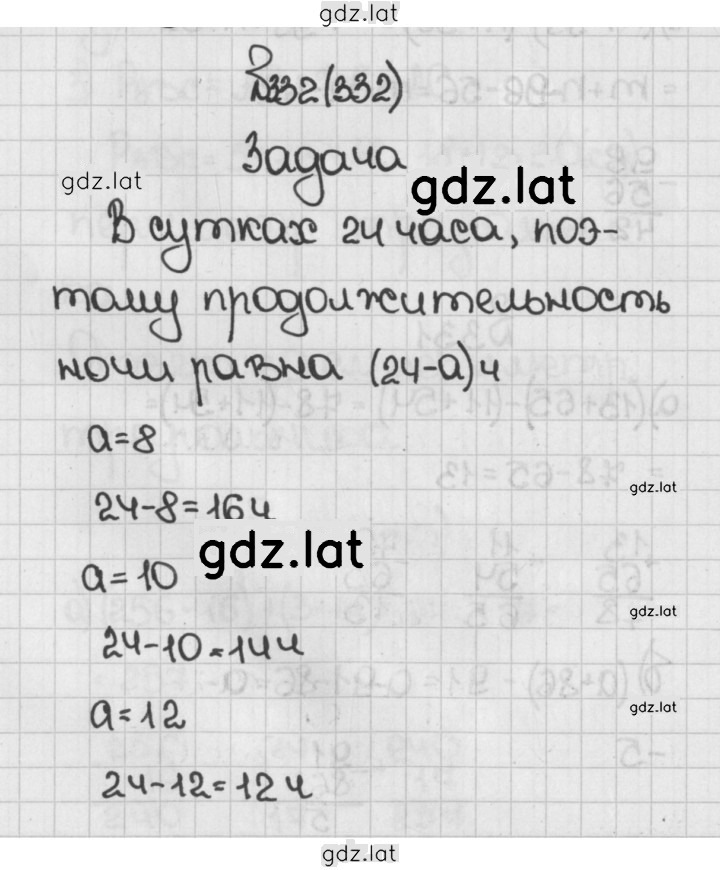 gdz.lat
№332(332)
Задача
gdz.lat
gdz.lat
В сутках 24 часа, поэ-
тому продолжительность
ночи равна (24-а)ч
а=8
gdz.lat
24-8=16ч
gdz.lat
а=10
gdz.lat
24-10=14ч
gdz.lat
а=12
24-12=12ч
gdz.lat